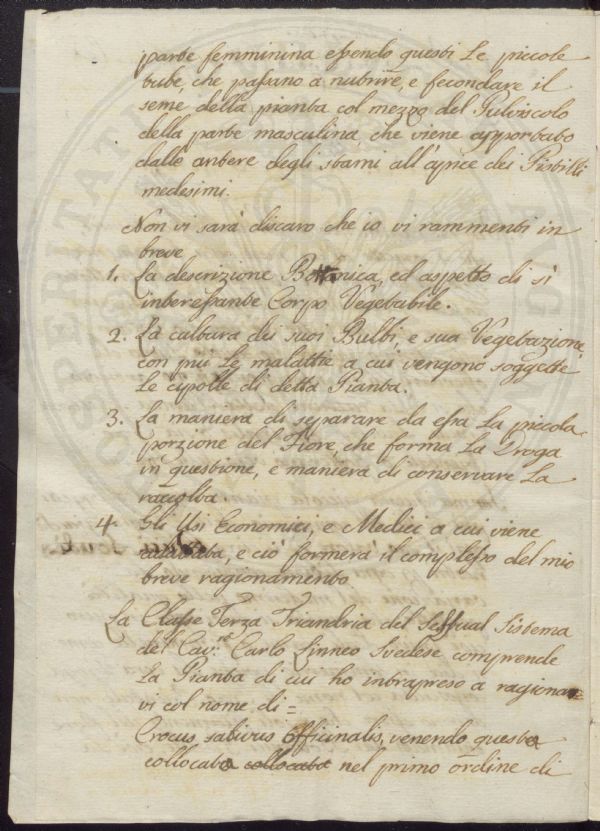 parte femminina essendo questi Le piccole
tube, che passano a nutrire, e fecondare il
seme della pianta col mezzo del Pulviscolo
della parte masculina, che viene apportato
dalle antere degli stami all'apice dei Pistilli
medesimi.
Non vi sarà discaro che io vi rammenti in
breve
1. La descrizione Bottanica, ed aspetto di sì
interessante Corpo Vegetabile.
2. La cultura dei suoi Bulbi, e sua Vegetazione
con più Le malattie a cui vengono soggette
Le cipolle di detta Pianta.
3. La maniera di separare da essa La piccola
porzione del Fiore, che forma La Droga
in questione, e maniera di conservare La
raccolta.
4. Gli Usi Economici, e Medici a cui viene
, e ciò formerà il complesso del mio
breve ragionamento
La Classe Terza Triandria del Sessual Sistema
del Cav.re Carlo Linneo Svedese comprende
La Pianta di cui ho intrapreso a ragionar=
vi col nome di=
Crocus sativus Officinalis, venendo questa
collocata collocata nel primo ordine di